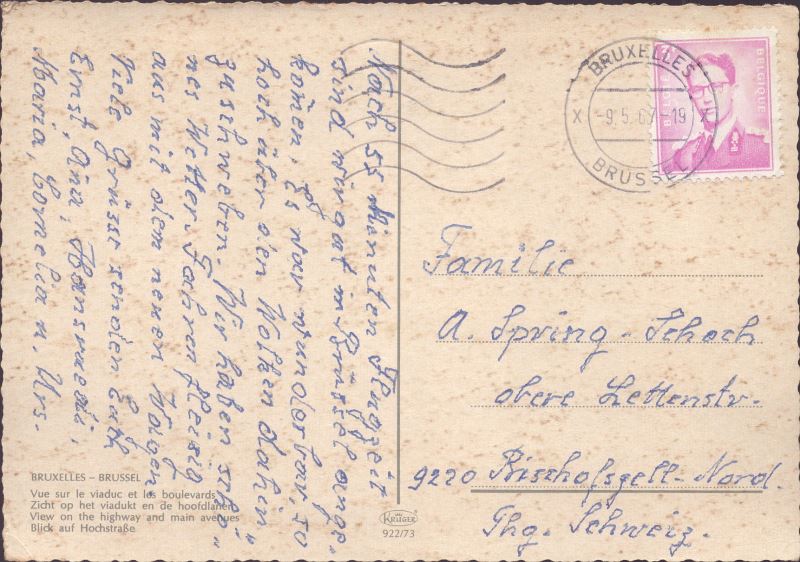 Nach 55 Minuten Flugzeit
sind wir gut in Brüssel ange-
komen. Es war wunderbar, so
hoch über den Wolken dahin
zu schweben. Wir haben schö-
nes Wetter. Fahren fleissig
aus mit dem neuen Wagen.
Viele Grüsse senden Euch
Ernst, Anni, Hansruedi,
Maria, Cornelia u. Urs.
BRUXELLES
-9.5.67-19
X X
BRUSSEL
BELGIE
BELGIQUE
Familie
A. Spring-Schoch
obere Lettenstr.
9220 Bischofszell-Nord.
Thg. Schweiz.
BRUXELLES – BRUSSEL
Vue sur le viaduc et les boulevards
Zicht op het viadukt en de hoofdlanen
View on the highway and main avenues
Blick auf Hochstraße
KRÜGER
922/73